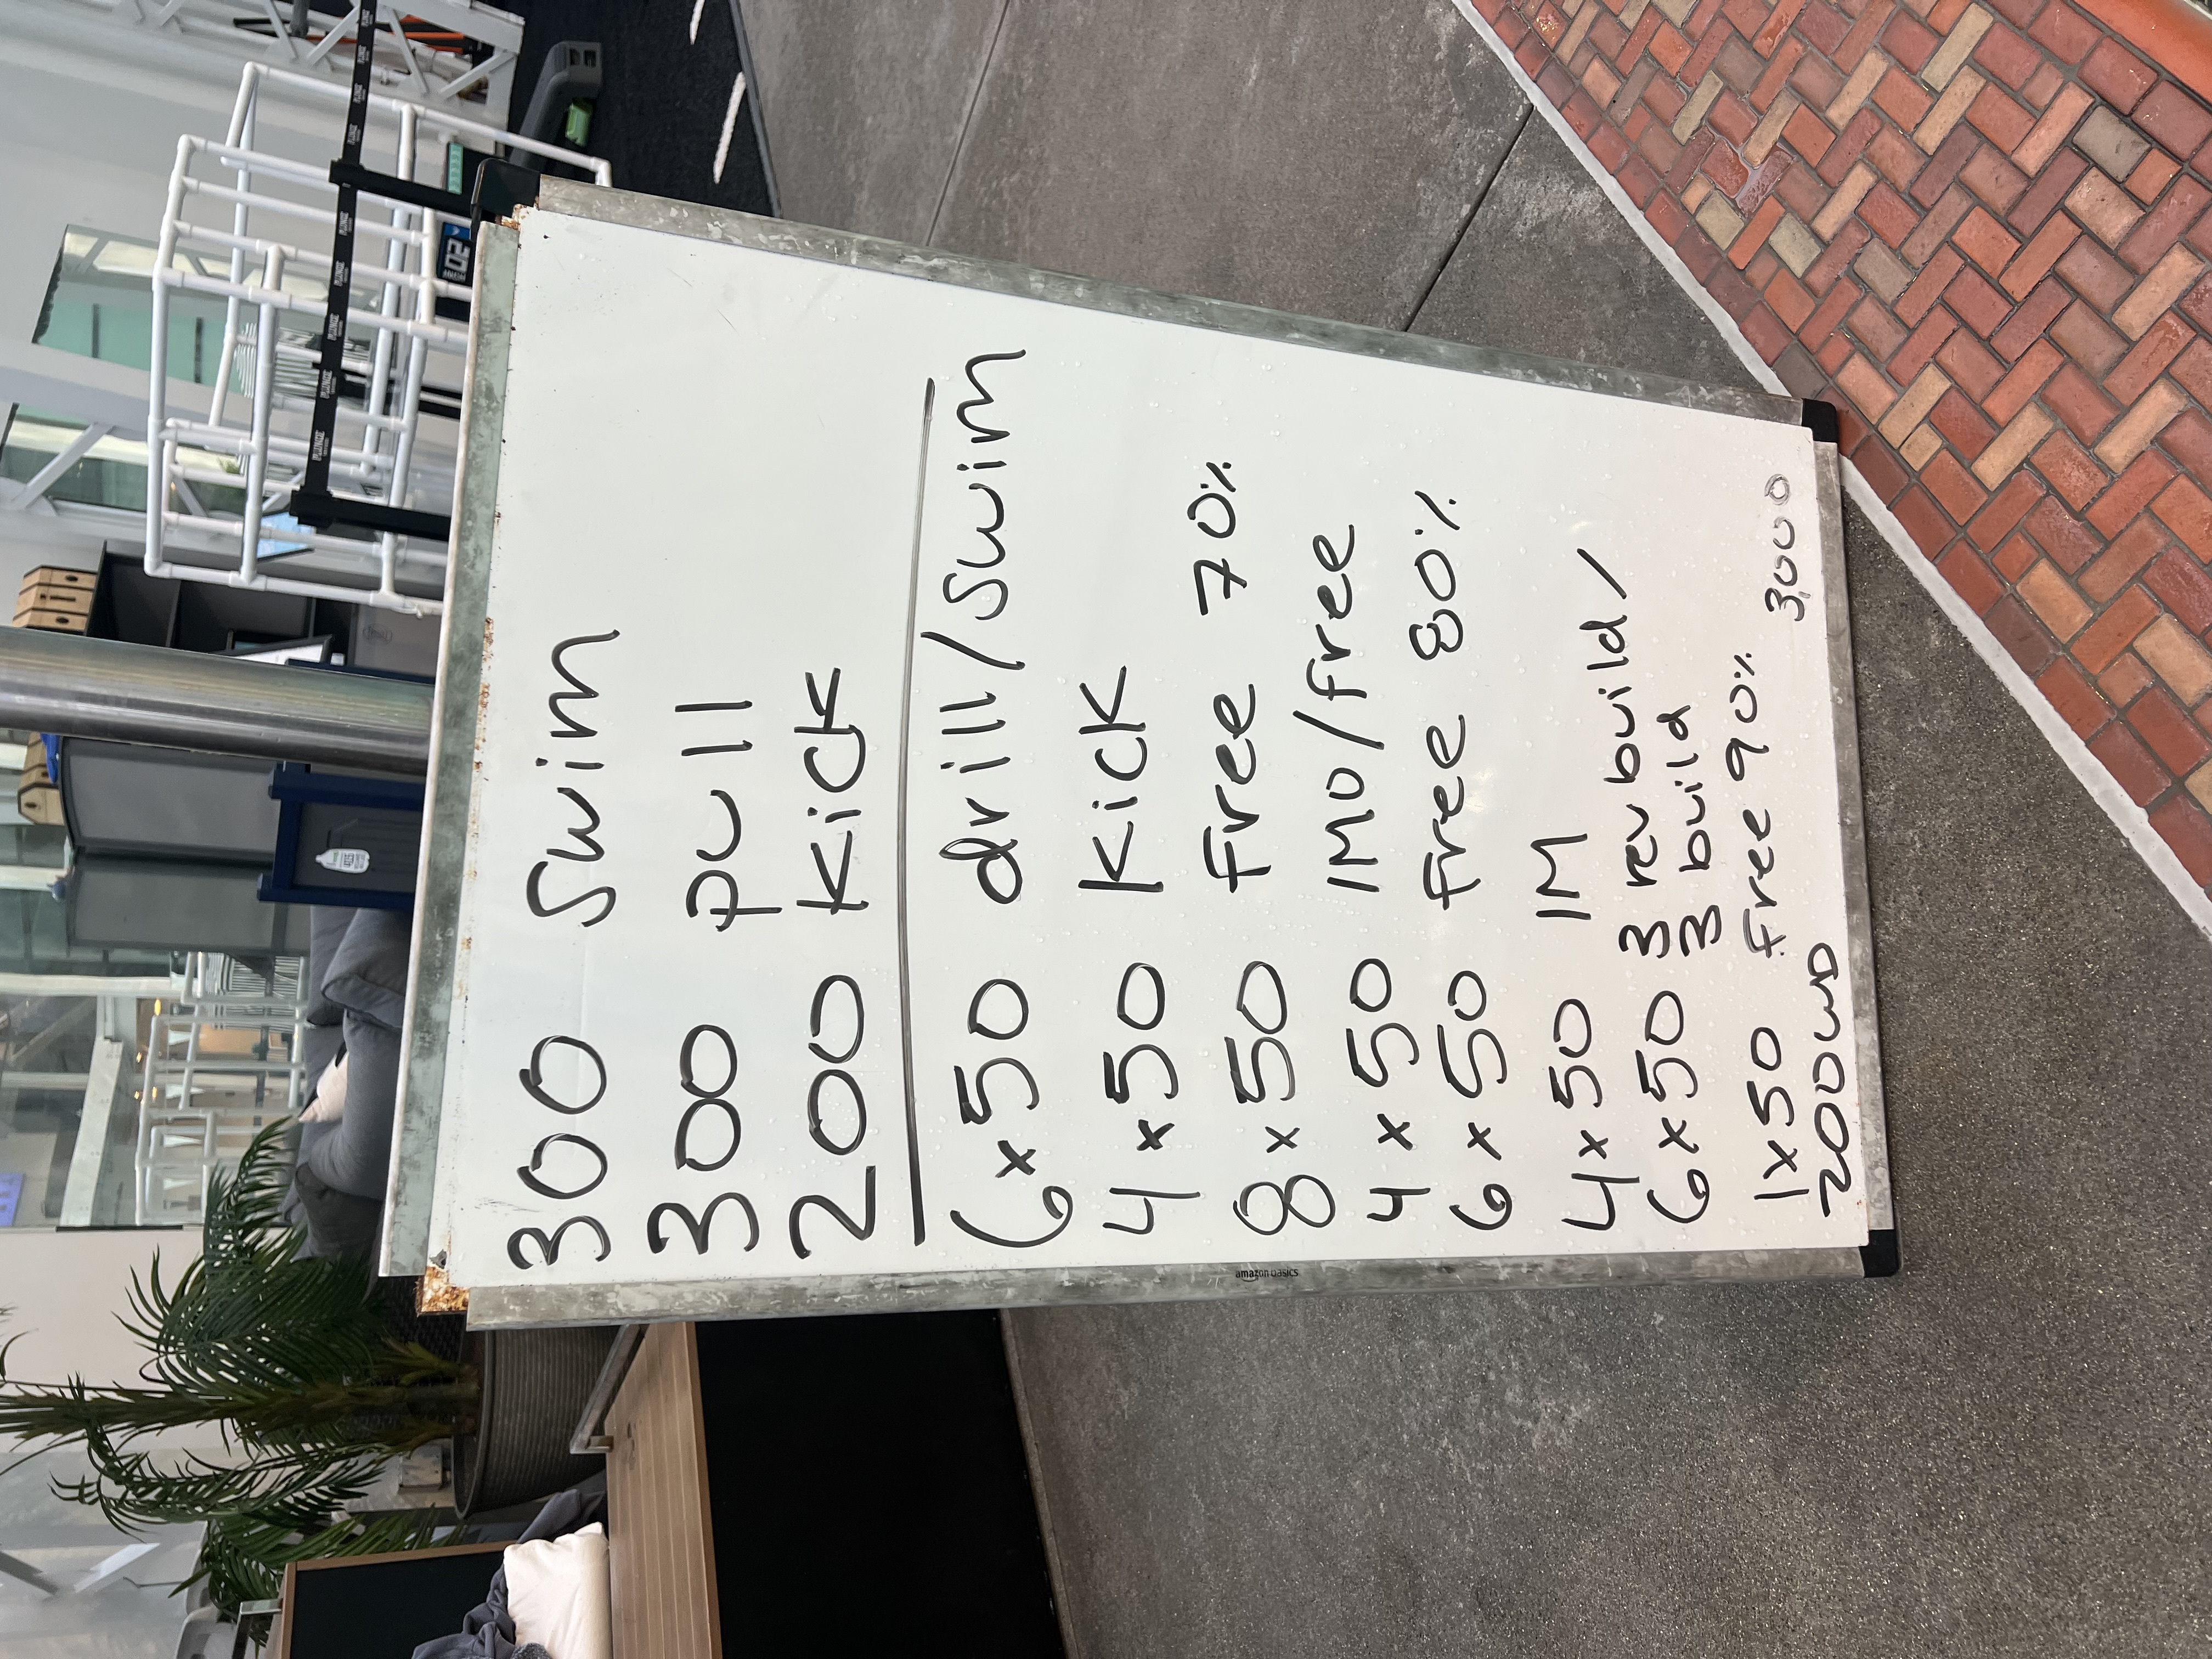 300 Swim
300 pull
200 kick
6 x 50 drill/swim
4 x 50 kick
8 x 50 free 70%
4 x 50 IMO/free
6 x 50 free 80%
4 x 50 IM
6 x 50 3 rev build/
3 build
1 x 50 free 90%
200 WD
3,000
amazon basics